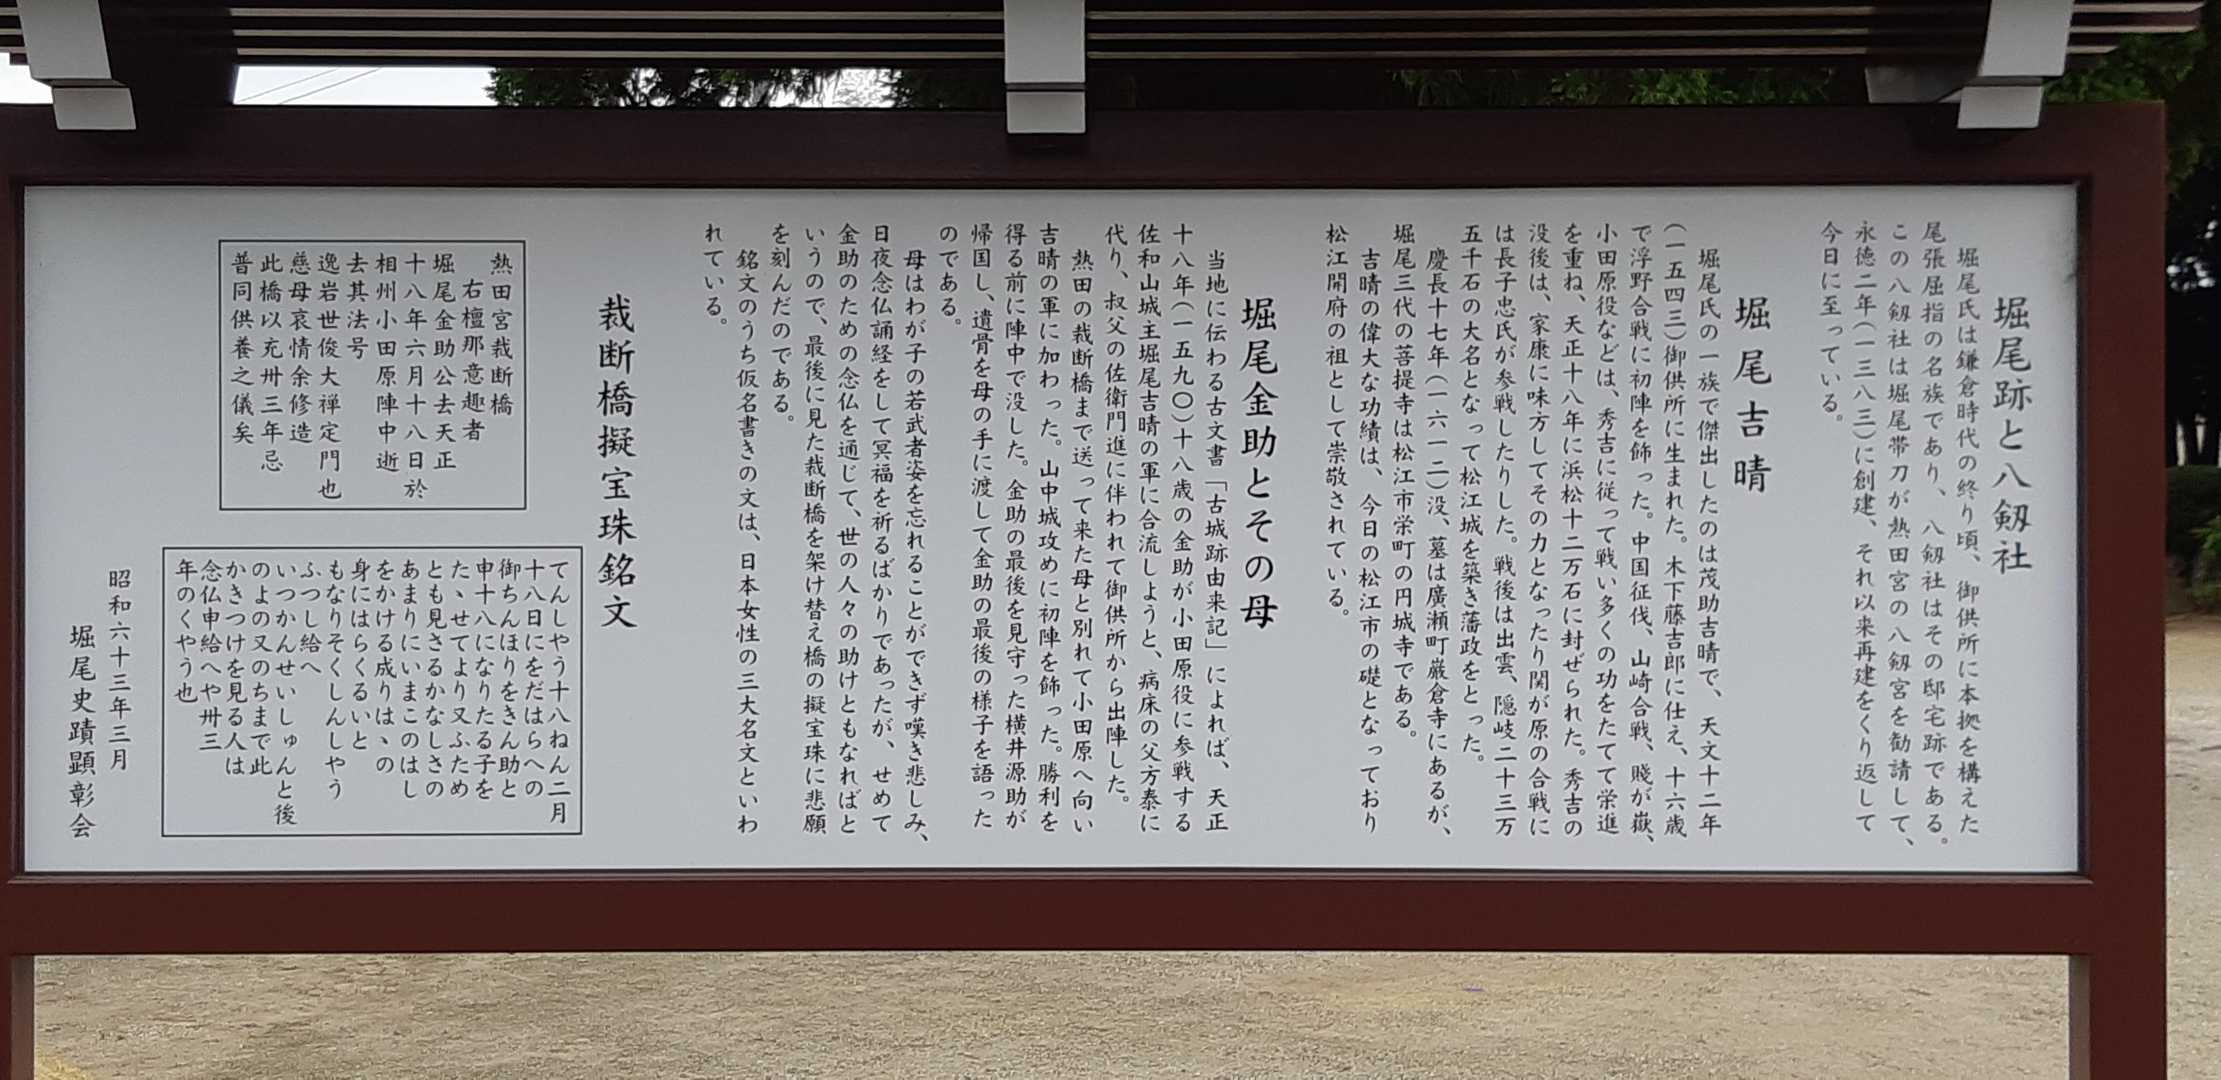 堀尾跡と八剱社
堀尾氏は鎌倉時代の終り頃、御供所に本拠を構えた
尾張屈指の名族であり、八剱社はその邸宅跡である。
この八剱社は堀尾帯刀が熱田宮の八剱宮を勧請して、
永徳二年(一三八三)に創建、それ以来再建をくり返して
今日に至っている。
堀尾吉晴
堀尾氏の一族で傑出したのは茂助吉晴で、天文十二年
(一五四三)御供所に生まれた。木下藤吉郎に仕え、十六歳
で浮野合戦に初陣を飾った。中国征伐、山崎合戦、賤が嶽、
小田原役などは、秀吉に従って戦い多くの功をたてて栄進
を重ね、天正十八年に浜松十二万石に封ぜられた。秀吉の
没後は、家康に味方してその力となったり関が原の合戦に
は長子忠氏が参戦したりした。戦後は出雲、隠岐二十三万
五千石の大名となって松江城を築き藩政をとった。
慶長十七年(一六一二)没、墓は廣瀬町巌倉寺にあるが、
堀尾三代の菩提寺は松江市栄町の円城寺である。
吉晴の偉大な功績は、今日の松江市の礎となっており
松江開府の祖として崇敬されている。
堀尾金助とその母
当地に伝わる古文書「古城跡由来記」によれば、天正
十八年(一五九〇)十八歳の金助が小田原役に参戦する
佐和山城主堀尾吉晴の軍に合流しようと、病床の父方泰に
代り、叔父の佐衛門進に伴われて御供所から出陣した。
熱田の裁断橋まで送って来た母と別れて小田原へ向い
吉晴の軍に加わった。山中城攻めに初陣を飾った。勝利を
得る前に陣中で没した。金助の最後を見守った横井源助が
帰国し、遺骨を母の手に渡して金助の最後の様子を語った
のである。
母はわが子の若武者姿を忘れることができず嘆き悲しみ、
日夜念仏誦経をして冥福を祈るばかりであったが、せめて
金助のための念仏を通じて、世の人々の助けともなればと
いうので、最後に見た裁断橋を架け替え橋の擬宝珠に悲願
を刻んだのである。
銘文のうち仮名書きの文は、日本女性の三大名文といわ
れている。
裁断橋擬宝珠銘文
熱田宮裁断橋
右檀那意趣者
堀尾金助公去天正
十八年六月十八日於
相州小田原陣中逝
去其法号
逸岩世俊大禅定門也
慈母哀情余修造
此橋以充卅三年忌
普同供養之儀矣
てんしやう十八ねん二月
十八日にをだはらへの
御ちんほりをきん助と
申十八になりたる子を
たゝせてより又ふため
とも見さるかなしさの
あまりにいまこのはし
をかける成りはゝの
身にはらくるいと
もなりそくしんしやう
ふつし給へ
いつかんせいしゅんと後
のよの又のちまで此
かきつけを見る人は
念仏申給へや卅三
年のくやう也
昭和六十三年三月
堀尾史蹟顕彰会